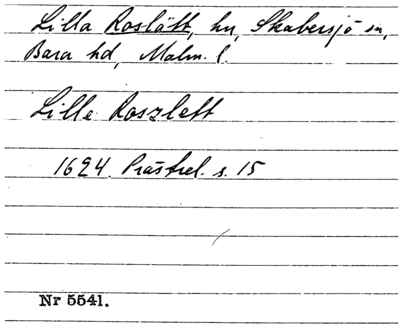 Lilla Roslätt, hn, Skabersjö sn,
Bara hd, Malm. l.
Lille Roszlett
1624. Prästrel. s. 15
Nr 5541.